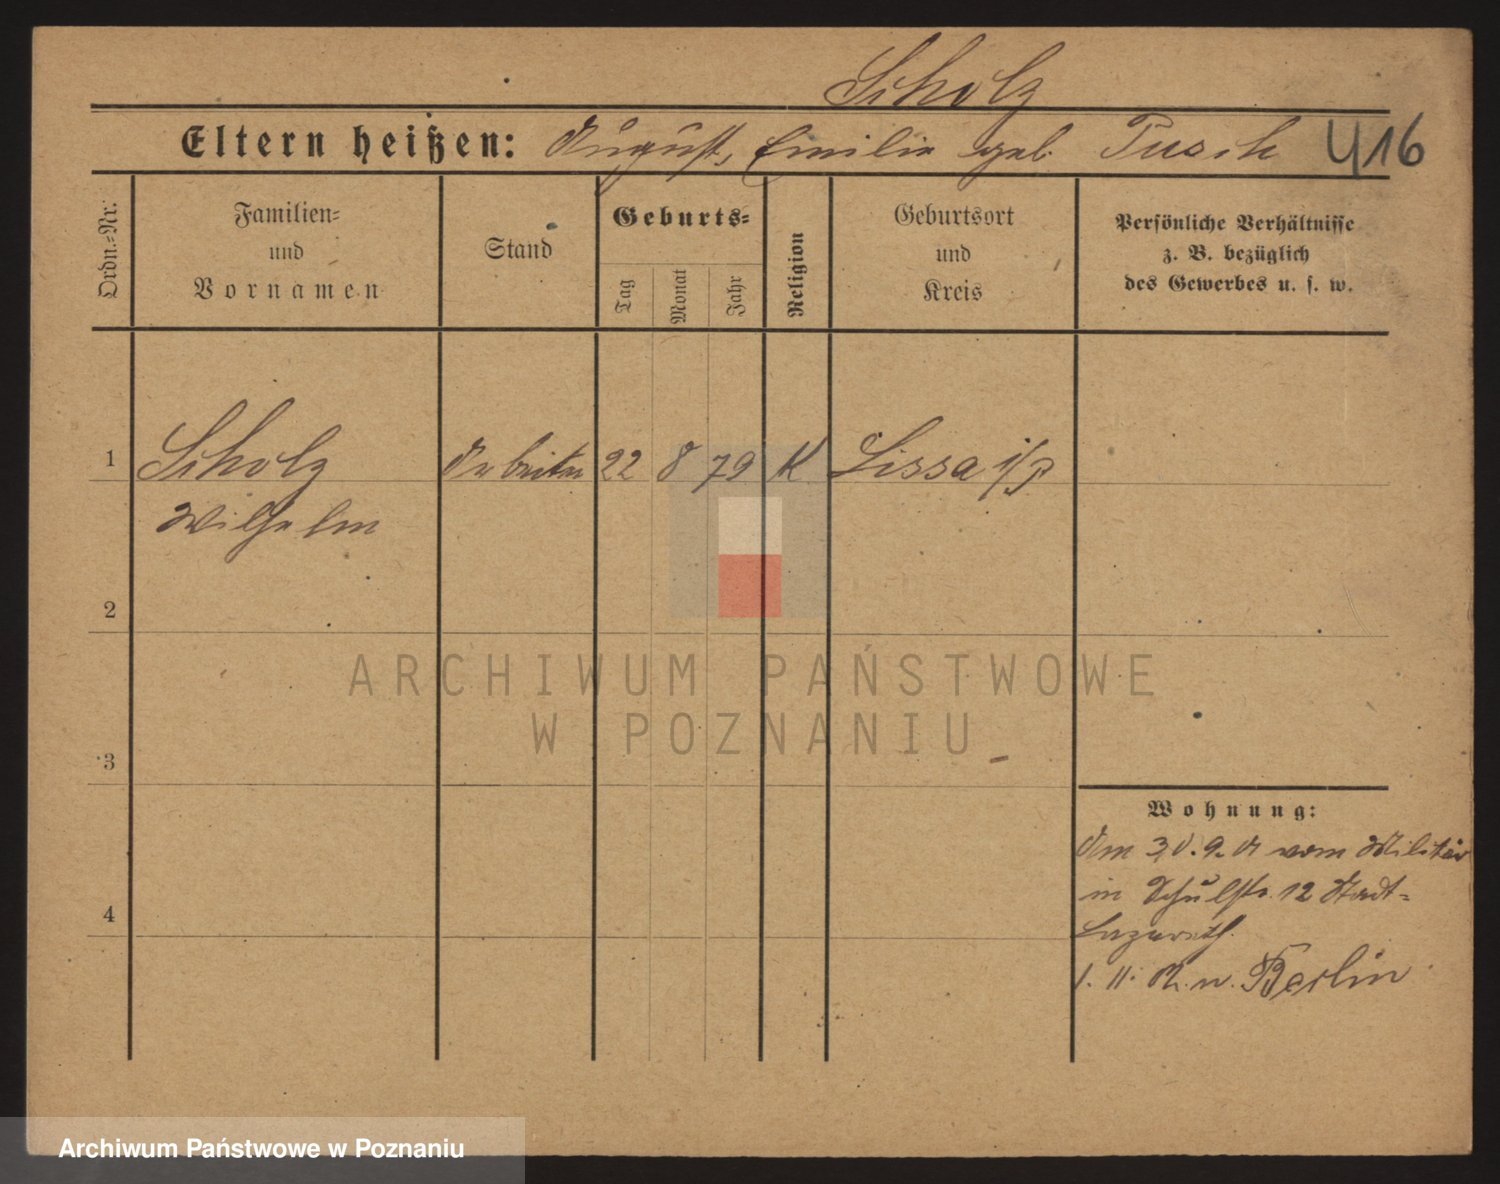 Scholz
Eltern heißen: August, Emilie geb. Tusch 416
Ordn.-Nr.
Familien-
und
Vornamen
Stand
Geburts-
Tag
Monat
Jahr
Religion
Geburtsort
und
Kreis
Persönliche Verhältnisse
z. B. bezüglich
des Gewerbes u. s. w.
1 Scholz Arbeiter 22 8 79 K Lissa i/P
Wilhelm
2
ARCHIWUM PAŃSTWOWE
W POZNANIU
3
Wohnung:
Am 30.9. vom Militär
in Schulstr. 12 Stadt-
Lazareth.
4
1. 11. n. Berlin
Archiwum Państwowe w Poznaniu